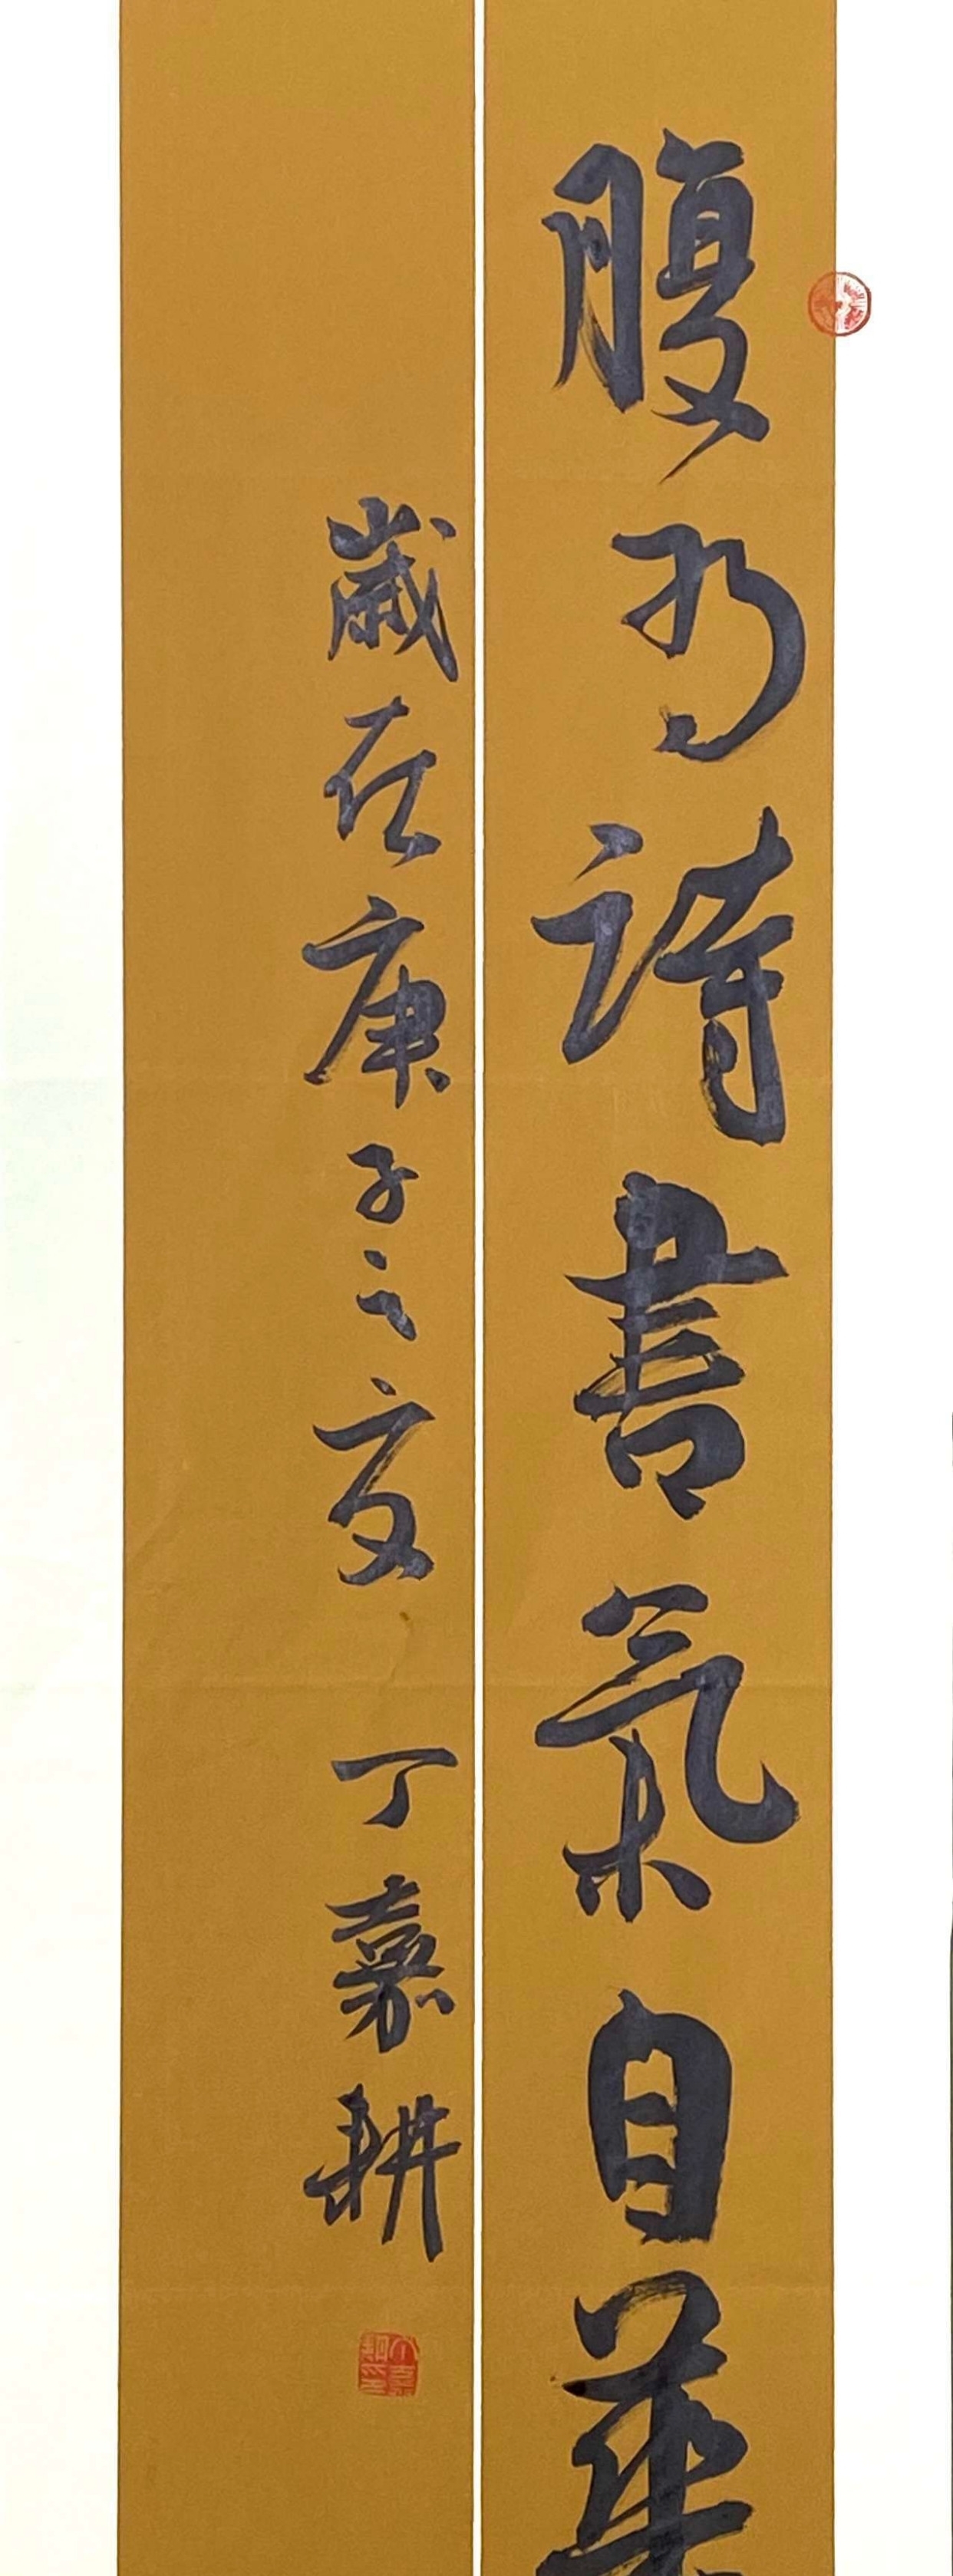 腹有詩書氣自華
歲在庚子之夏 丁嘉耕